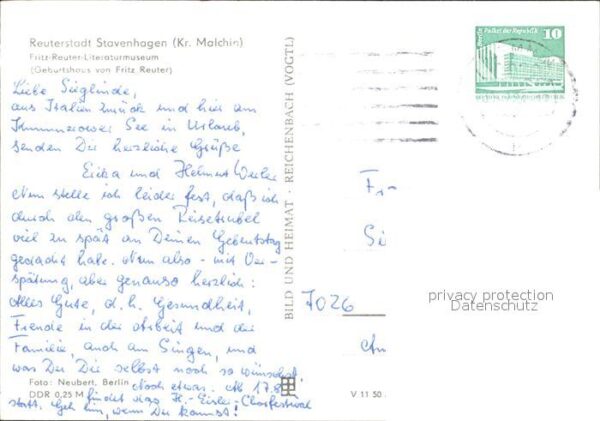 Reuterstadt Stavenhagen (Kr. Malchin)
Fritz-Reuter-Literaturmuseum
(Geburtshaus von Fritz Reuter)
Liebe Sieglinde,
aus Italien zurück und hier am
Kummerower See in Urlaub,
senden Dir herzliche Grüße
Erika und Helmut
Nun stelle ich leider fest, daß ich
durch den großen Reisetrubel
viel zu spät an Deinen Geburtstag
gedacht habe. Nun also - mit Ver-
spätung, aber genauso herzlich:
Alles Gute, d.h. Gesundheit,
Freude in der Arbeit und die
Familie, auch am Singen, und
was Du Dir selbst noch so wünschst.
Noch etwas. Ab 17.8.
findet das H.-Eisler-Chorfestival
statt. Geh hin, wenn Du kannst!
Foto: Neubert, Berlin
DDR 0,25 M
BILD UND HEIMAT · REICHENBACH (VOGTL)
V 11 50
Berlin Palast der Republik 10
7026
Fr
Si
privacy protection
Datenschutz